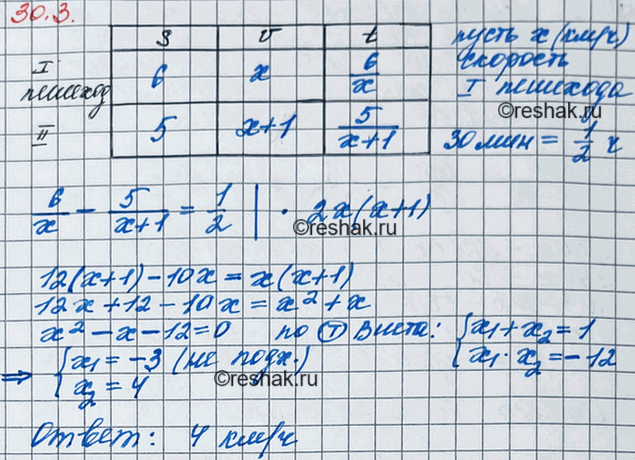 30.3.
S v t
I пешеход 6 x 6/x
II 5 x+1 5/(x+1)
пусть x (км/ч)
скорость
I пешехода
30 мин = 1/2 ч
©reshak.ru
6/x - 5/(x+1) = 1/2 | · 2x(x+1)
©reshak.ru
12(x+1)-10x=x(x+1)
12x+12-10x=x²+x
x²-x-12=0 по Ⓣ Виета: { x₁+x₂=1
x₁·x₂=-12
⇒ { x₁=-3 (не подх.)
x₂=4
©reshak.ru
Ответ: 4 км/ч